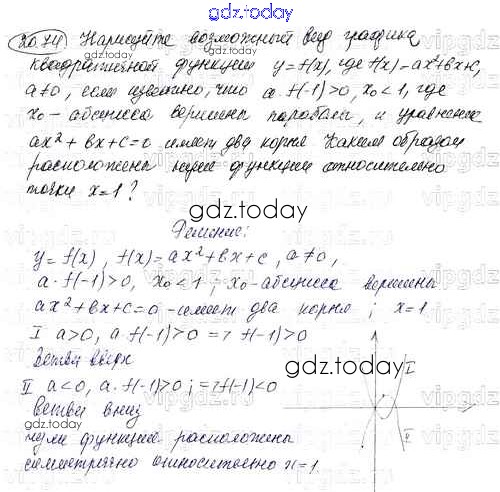 gdz.today
20.74 Нарисуйте возможный вид графика
квадратичной функции y=f(x), где f(x)=ax²+bx+c,
a≠0, если известно, что a·f(-1)>0, x₀<1, где
x₀ - абсцисса вершины параболы, и уравнение
ax²+bx+c=0 имеет два корня. Каким образом
расположены нули функции относительно
точки x=1?
gdz.today
Решение:
y=f(x), f(x)=ax²+bx+c, a≠0,
a·f(-1)>0, x₀<1; x₀-абсцисса вершины
ax²+bx+c=0 -имеет два корня; x=1
I a>0, a·f(-1)>0 => f(-1)>0
Ветви вверх
gdz.today
II a<0, a·f(-1)>0; => f(-1)<0
ветви вниз
нули функции расположены
симметрично относительно x=1
I
II
gdz.today